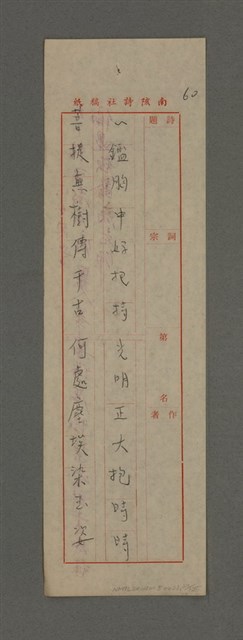 60
南陔詩社稿紙
詩題
詞宗
第 名
作者
心鑑胸中好把持光明正大抱時時
菩提真樹傳千古何處塵埃染玉姿